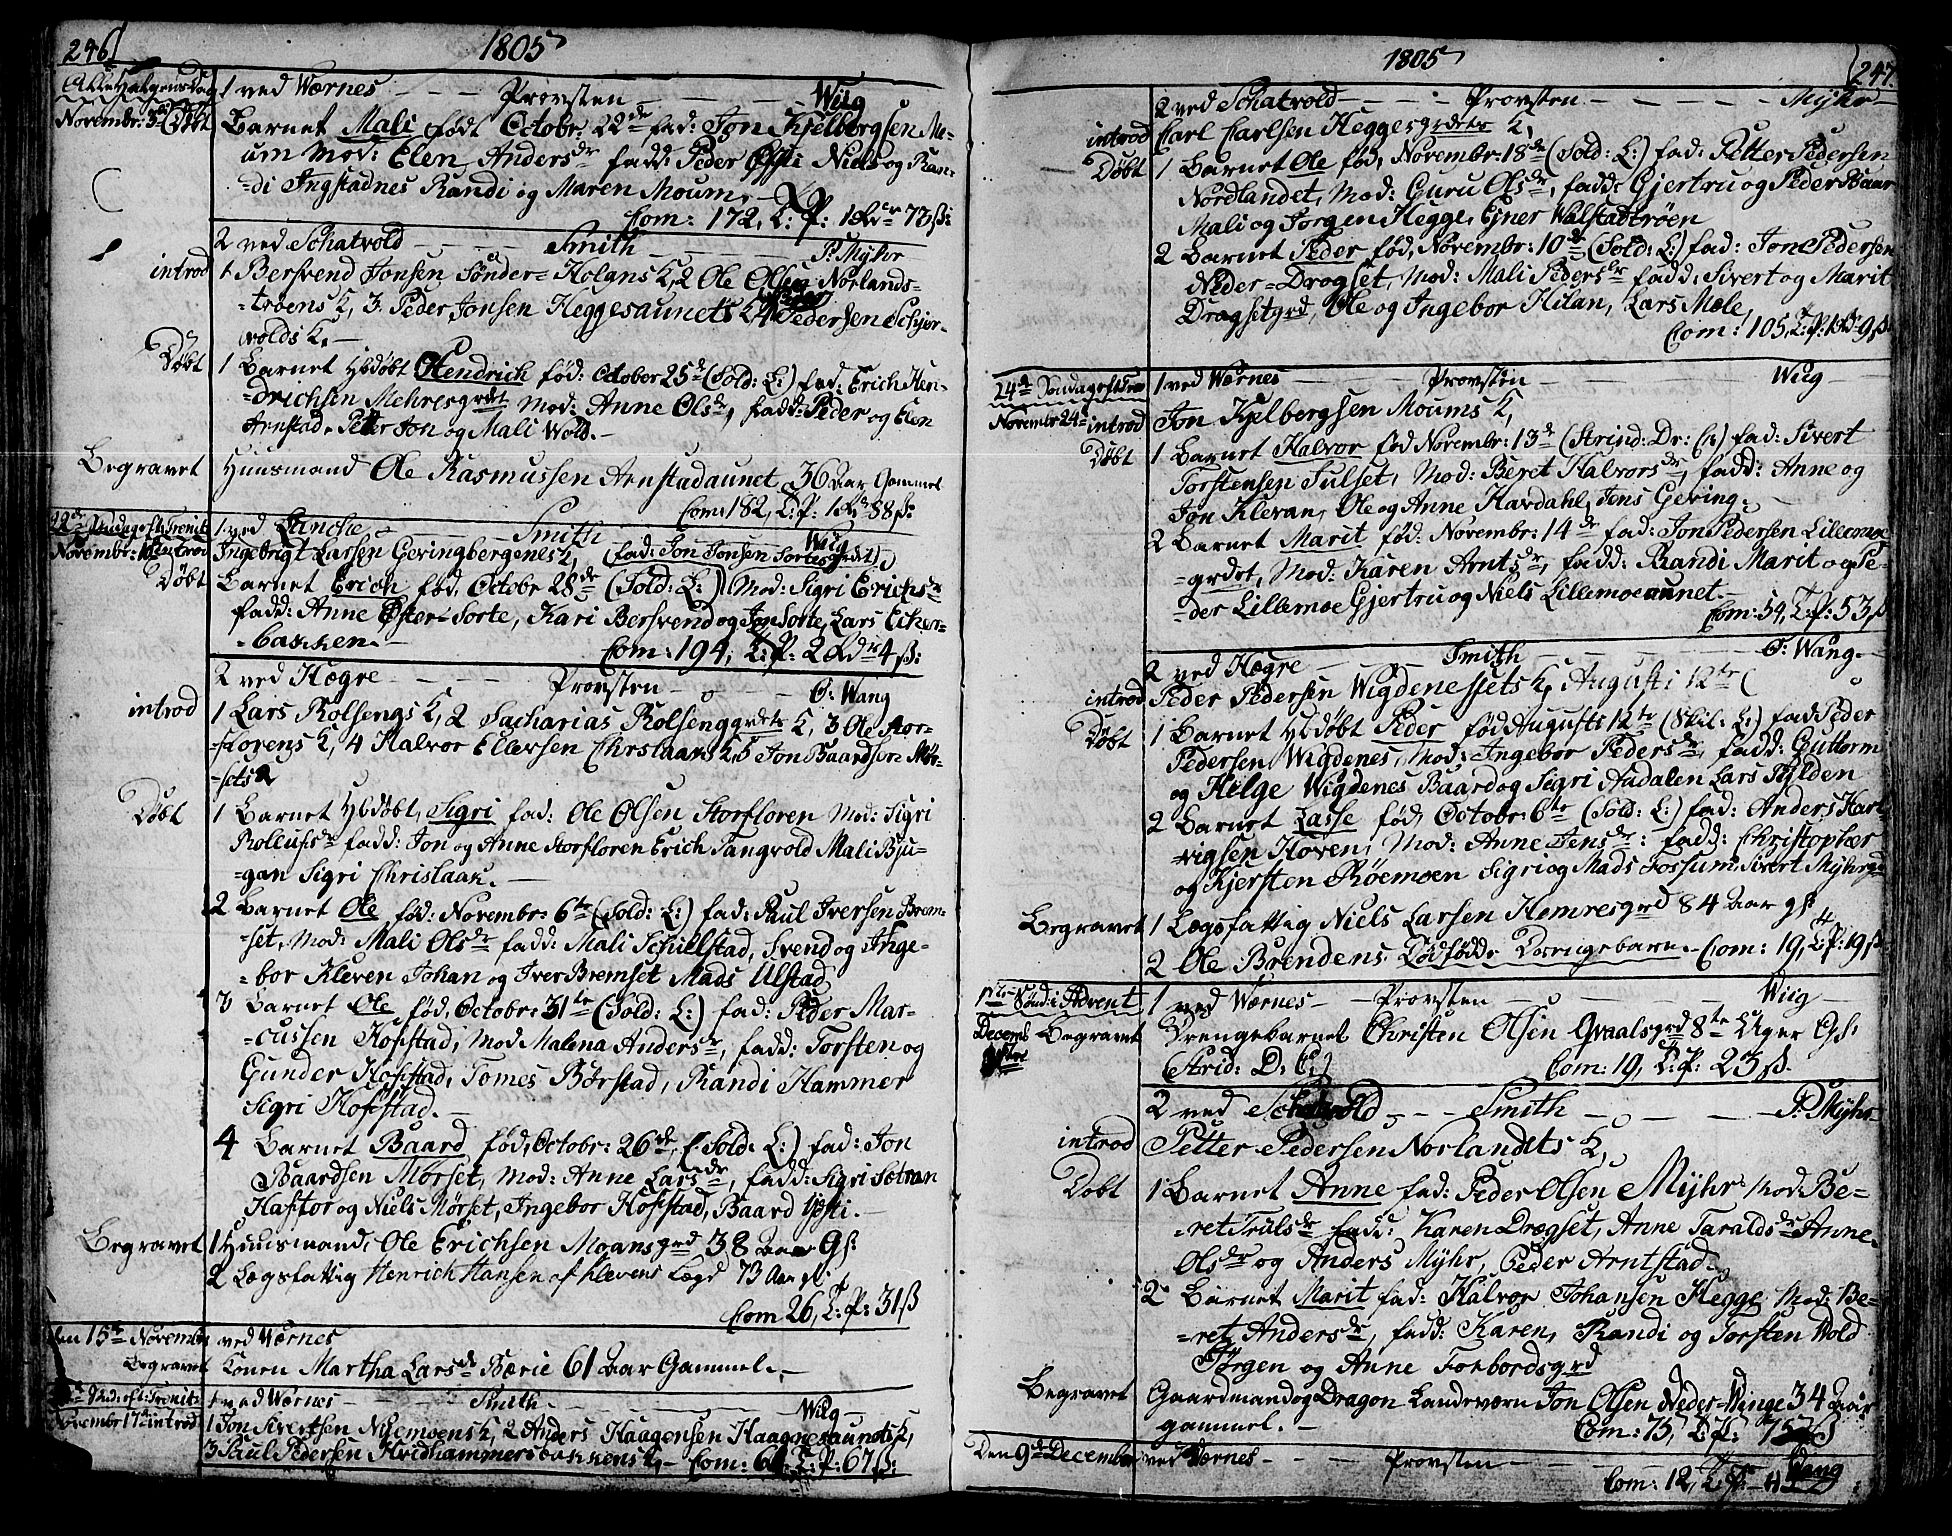 246
1805
Alle Helgens Dag 1 ved Wærnes - - - Provsten - - - Wiig
Novembr: 3die Døbt Barnet Mali født Octobr: 22de fad: Jon Kjelbergsen Mo-
um Mod: Elen Andersdr fadd: Peder Øfsti Niels og Ran-
=di Ingstadnes Randi og Maren Moum.
Com: 172, T: P: 1 Rdr 73 ß:
2 ved Schatvold - - - Smith - - - P: Myhr
introd 1 Bersvend Jonsen Sønder=Holans K, 2 Ole Olsen Norlands-
=trøens K, 3 Peder Jonsen Heggesaunets K, 4 Pedersen Schjer-
volds K.
Døbt 1 Barnet Hbdøbt Hendrich fød: October 25de (Sold: L:) fad: Erich Hen-
=drichsen Mehresgrdet Mod: Anne Olsdr, fadd: Peder og Elen
Arnstad, Peter Jon og Mali Wold.
Begravet Huusmand Ole Rasmussen Arnstadaunet 36 Aar Gammel
Com: 182, T: P: 1 Rd 88 ß:
22de Søndag eft: Trenit: 1 ved Lancke - - - Smith - - - Wiig
Novembr: 10 introd Ingebrigt Larsen Geringbergenes K, (fad: Jon Jonsen Sortesgrdet)
Døbt Barnet Erich fød, Octobr 28de (Sold: L:) (Mod: Sigri Erichsdr
fadd: Anne Øster-Sorte, Kari Bersvend og Jon Sorte, Lars Eicher-
=backen.
Com: 194, T: P: 2 Rdr 4 ß:
2 ved Hegre - - - Provsten - - - O: Wang
introd 1 Lars Rolsengs K, 2 Sacharias Rolsenggrdets K, 3 Ole Stor-
=florens K, 4 Halvor Ellersen Chrislaans K, 5 Jon Baardsen Mør-
=sets K
Døbt 1 Barnet Hbdøbt, Sigri fad: Ole Olsen Storfloren Mod: Sigri
Rollufsdr fadd: Jon og Anne Storfloren Erich Tangvold Mali Bju-
=gan Sigri Chrislaan.
2 Barnet Ole fød: Novembr: 6te (Sold: L:) fad: Paul Iversen Brem-
=set, Mod: Mali Olsdr fadd: Mali Schillstad, Svend og Inge-
=bor Kleven Johan og Iver Bremset Mads Ulstad
3 Barnet Ole fød, October: 31te (Sold: L:) fad: Peder Mar-
=cussen Hofstad, Mod Malena Andersdr, fadd: Torsten og
Gunder Hofstad, Tomes Børstad, Randi Hammer
Sigri Hofstad.
4 Barnet Baard fød, Octobr: 26de (Sold: L:) fad: Jon
Baardsen Mørset, Mod: Anne Larsdr, fadd: Sigri Sætran
Haftor og Niels Mørset, Ingebor Hofstad, Baard Øfsti.
Begravet 1 Huusmand, Ole Erichsen Moansgrd 38 Aar Gl:
2 Lægsfattig Henrich Hansen af Klevens Lægd 73 Aar gl:
Com 26, T: P: 31 ß
den 15de Novembr ved Wærnes
Begravet Konen Martha Larsdr Bærie 61 Aar Gammel.
Sønd: eft: Trenit: 1 ved Wærnes - - - Smith - - - Wiig
Novembr 17de introd 1 Jon Sivertsen Nyemoens K, 2 Anders Haagensen Haagnesaunets K,
3 Paul Pedersen Hvidhammersbakkens K, Com: 61, T: P: 67 ß:
1805
247.
2 ved Schatvold - - - Provsten - - - Myhr
introd Carl Carlsen Heggesgrdets K,
Døbt 1 Barnet Ole fød, Novembr: 18de (Sold: L:) fad: Petter Pedersen
Nordlandet, Mod: Guru Olsdr, fadd: Gjertru og Peder Baar
Mali og Jørgen Hegge, Ejner Walstadtrøen
2 Barnet Peder fød, Novembr: 10de (Sold: L:) fad: Jon Pedersen
Neder=Dragset, Mod: Mali Pedersdr fadd: Sivert og Marit
Dragsetgrd, Ole og Ingebor Hilan, Lars Mæle,
Com: 105, T: P: 1 Rdr 9 ß
24de Søndag eft: Tren 1 ved Wærnes - - - Provsten - - - Wiig
Novembr 24de introd Jon Kjelbergsen Moums K,
Døbt 1 Barnet Halvor fød Novembr: 13de (Strind: Dr: C:) fad: Sivert
Torstensen Tulset, Mod: Beret Halvorsdr, fadd: Anne og
Jon Klevan, Ole og Anne Hardahl, Jens Gering.
2 Barnet Marit fød: Novembr: 14de fad: Jon Pedersen Lillemoe
=grdet, Mod: Karen Arntsdr, fadd: Randi Marit og Pe-
=der Lillemoe Gjertru og Niels Lillemoeaunet.
Com: 54, T: P: 53 ß
2 ved Hegre - - - Smith - - - O: Wang
introd Peder Pedersen Wigdenessets K, Augusti 12te (
Døbt 1 Barnet Hbdøbt Peder fød Augusti 12te (Skil: L:) fad Peder
Pedersen Wigdenes, Mod: Ingebor Pedersdr, fadd: Guttorm
og Helge Wigdenes Baard og Sigri Aadalen Lars Fylden
2 Barnet Lasse fød, Octobr: 6te (Sold: L:) fad: Anders Hart-
=vigsen Hoven, Mod: Anne Jensdr: fadd: Christopher
og Kjersten Røemoen Sigri og Mads Fossum Sivert Myhrgrd
Begravet 1 Lægsfattig Niels Larsen Hemresgrd 84 Aar gl:
2 Ole Brendens Dødfødde Drengebarn. Com: 19, T: P: 19 ß
1ste Sønd: i Advent 1 ved Wærnes - - Provsten - - - Wiig
Decemb Begravet Drengebarnet Christen Olsen Graalsgrd 8te Uger Gl:
1ste (Strid: D: C:) Com: 19, T: P: 23 ß.
2 ved Schatvold - - - Smith - - - P: Myhr
introd Petter Pedersen Norlandets K,
Døbt 1 Barnet Anne fad: Peder Olsen Myhr Mod: Be-
=ret Trulsdr fadd: Karen Dragset, Anne Taraldsdr Anne
Olsdr og Anders Myhr, Peder Arntstad.
2 Barnet Marit fad: Halvor Johansen Hegge Mod: Be-
=ret Andersdr, fadd: Karen, Randi og Torsten Wold
Jørgen og Anne Forbordsgrd
Begravet Gaardmand og Dragon Landeværn Jon Olsen Neder=Winge 34 Aar
gammel.
Com: 75, T: P: 75 ß
Den 9de December ved Wærnes - - - Provsten - - - Wang
Com: 12, T: P: